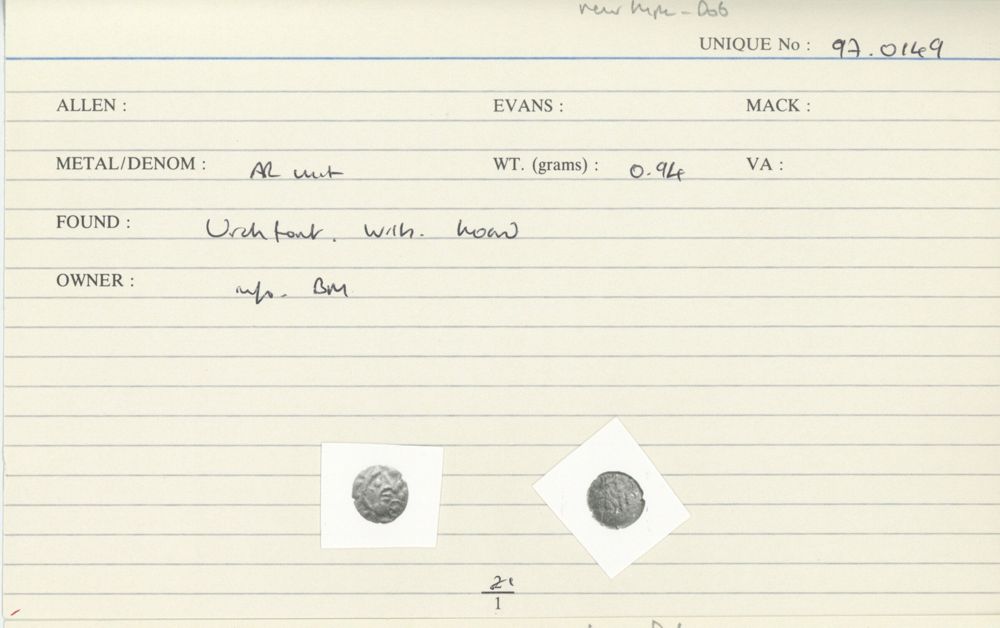 new type - Dob
UNIQUE No : 97.0149
ALLEN : EVANS : MACK :
METAL/DENOM : AR unit WT. (grams) : 0.94 VA :
FOUND : Urchfont. with. hoard
OWNER : info. BM
2:
1